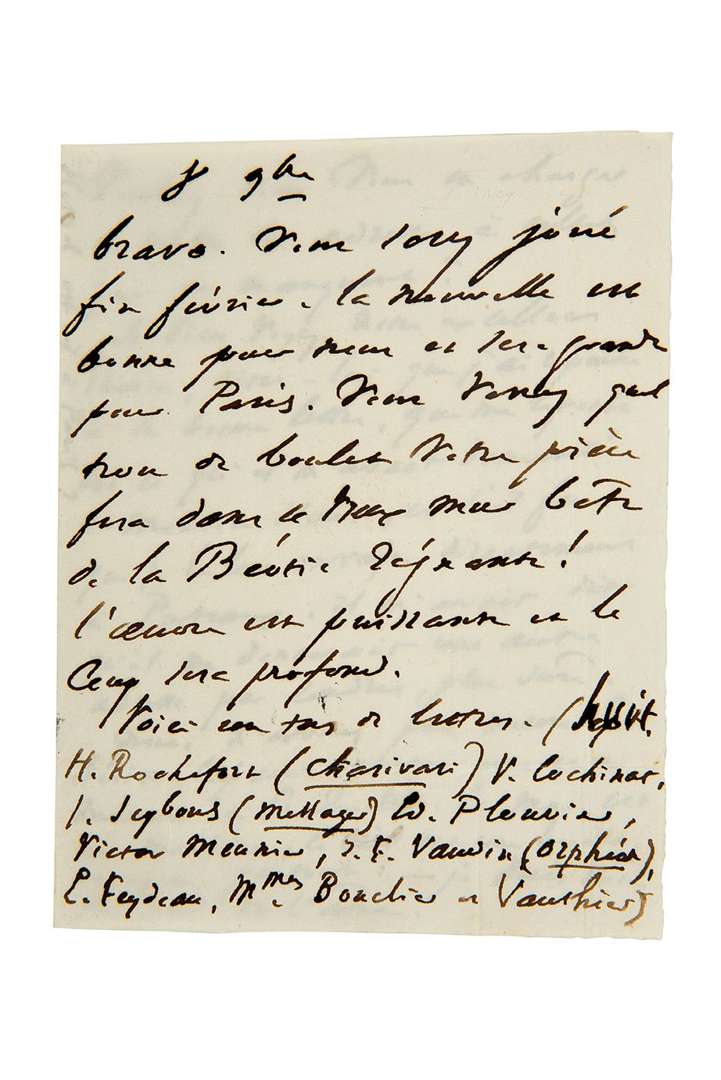 8 9bre
bravo. Vous serez joué
fin février. la nouvelle est
bonne pour nous et sera grande
pour Paris. Vous verrez quel
trou de boulet votre pièce
fera dans le vieux mur bête
de la Béotie régnante!
l'œuvre est puissante et le
coup sera profond.
Voici un tas de lettres. (huit.
H. Rochefort (Charivari) V. Cochinat,
J. (Messager) Ed. Plouvier,
Victor Meunier, Vaudin (Orphéon),
E. Feydeau, Mmes Bouclier et Vauthier)